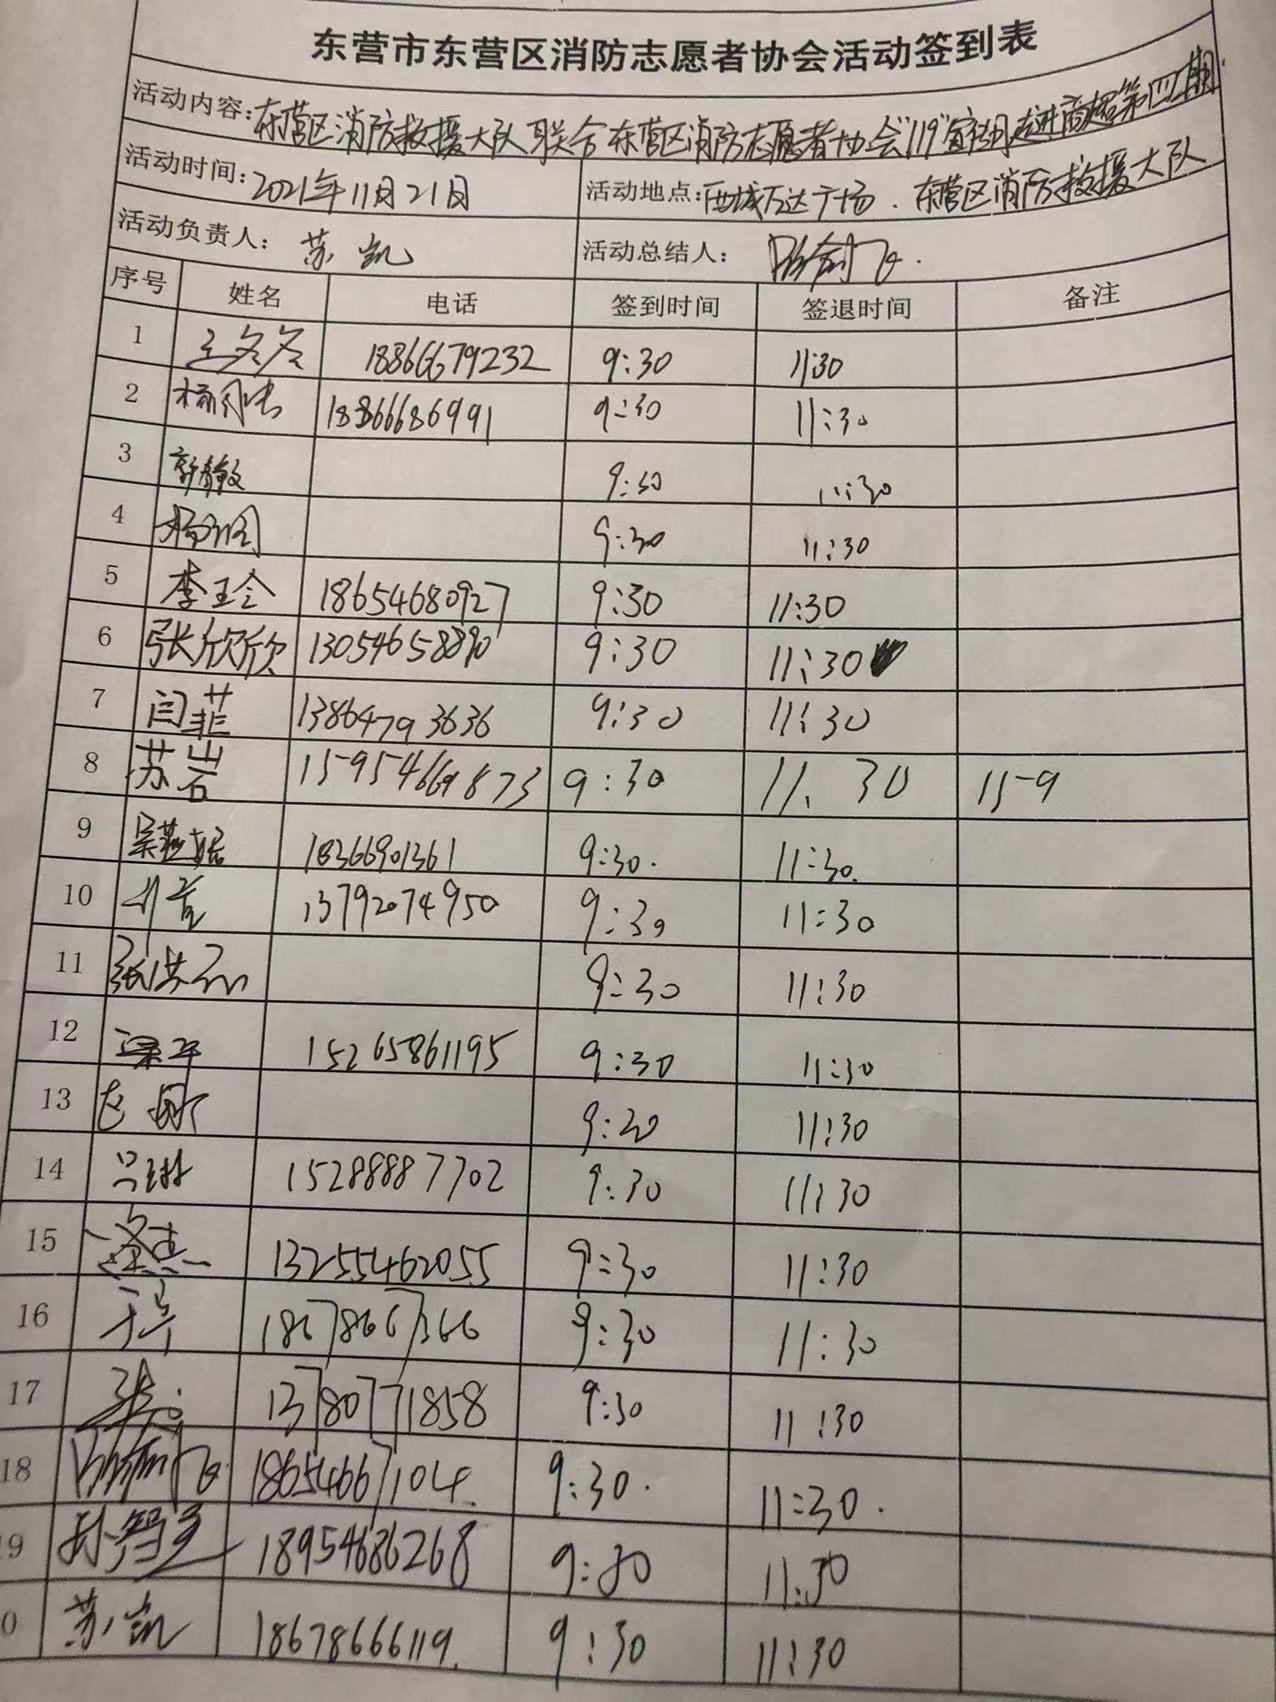 东营市东营区消防志愿者协会活动签到表
活动内容:东营区消防救援大队联合东营区消防志愿者协会"119"宣传周走进商超第四期.
活动时间:2021年11月21日 活动地点:西城万达广场.东营区消防救援大队
活动负责人: 苏凯 活动总结人:
序号 姓名 电话 签到时间 签退时间 备注
1 王冬冬 18866679232 9:30 11:30
2 18866686991 9:30 11:30
3 靳静敏 9:30 11:30
4 9:30 11:30
5 李玉玲 18654680927 9:30 11:30
6 张欣欣 13054658890 9:30 11:30
7 闫菲 13864793636 9:30 11:30
8 苏岩 15954669873 9:30 11.30 15-9
9 18366901361 9:30. 11:30.
10 13792074950 9:30 11:30
11 9:30 11:30
12 梁平 15265861195 9:30 11:30
13 9:20 11:30
14 吕琳 15288887702 9:30 11:30
15 13255462055 9:30 11:30
16 18678667366 9:30 11:30
17 13780771858 9:30 11:30
18 18654667104. 9:30. 11:30.
9 18954686268 9:30 11:30
0 苏凯 18678666119. 9:30 11:30